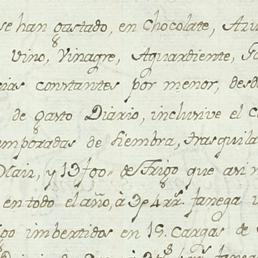 se han gastado, en Chocolate, Azu
vino, Vinagre, Aguardiente,
constantes por menor, desd
de gasto Diario, inclusive el
temporadas de siembra, trasquila
Maiz, y 13 f 00 de Trigo que asi
en todo el año, à 3 p 4 rr fanega
imbertidos en 15 Cargas de
fanega